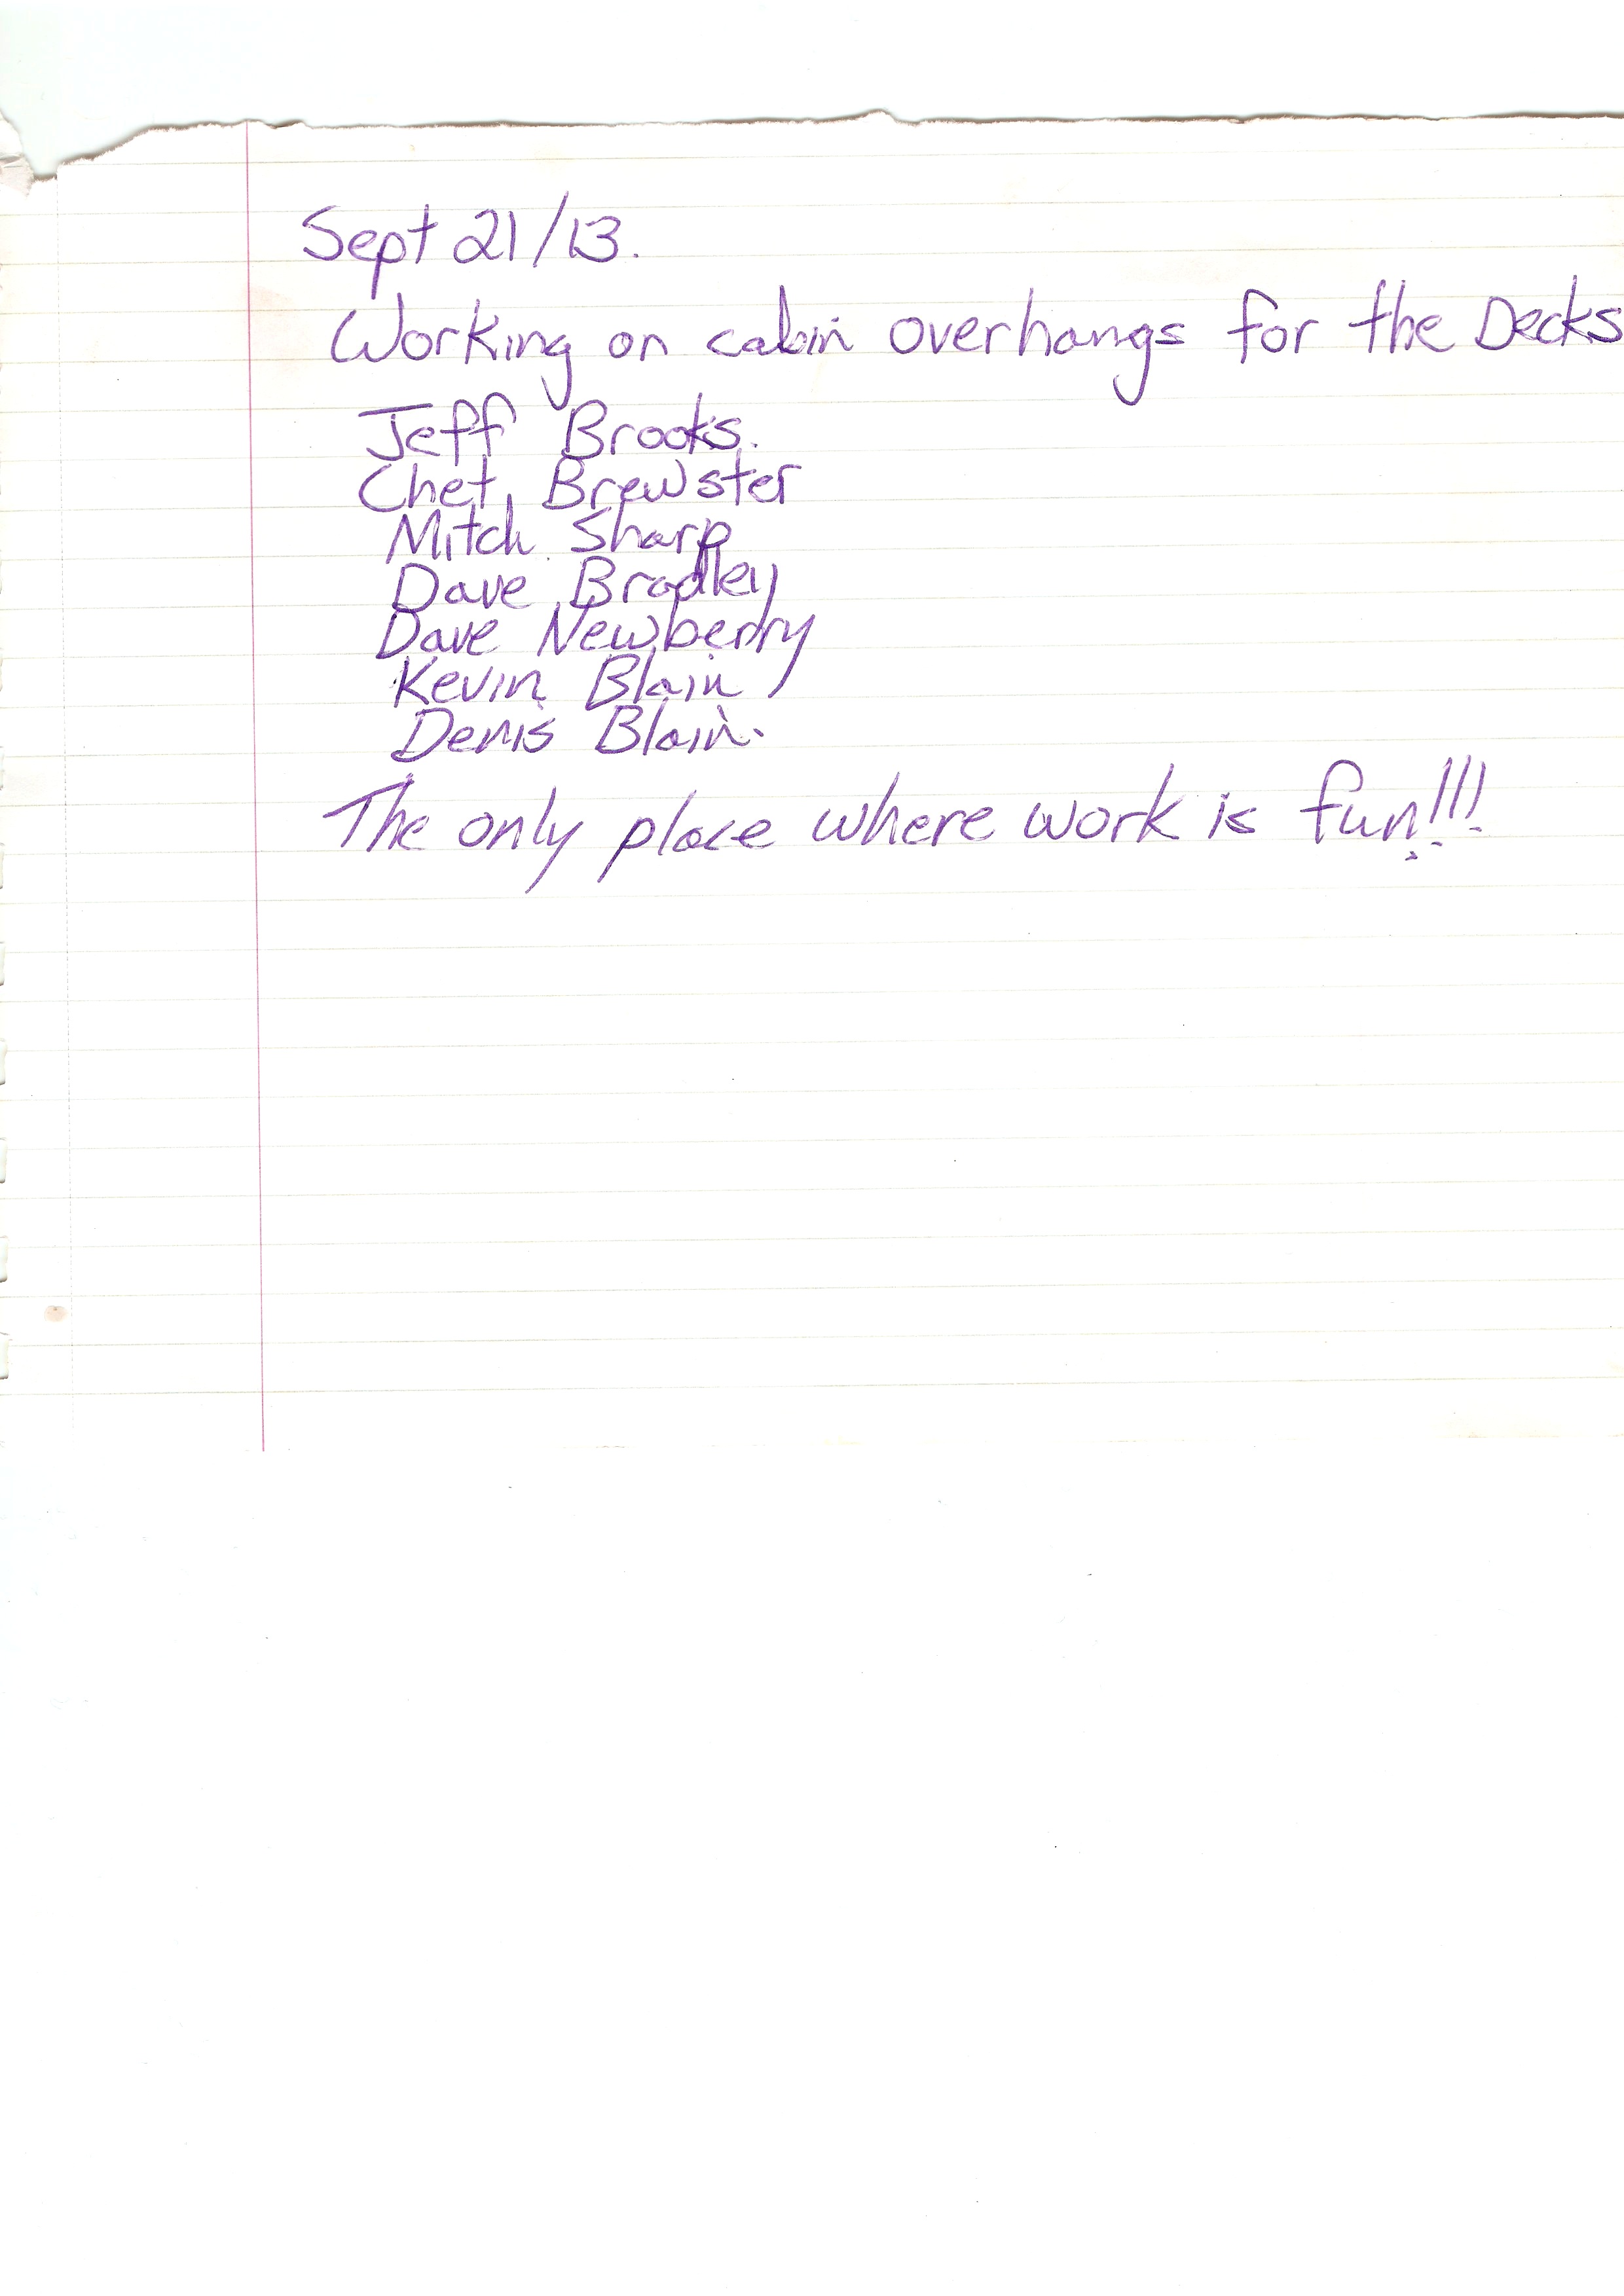 Sept 21/13.
Working on cabin overhangs for the Decks
Jeff Brooks.
Chet Brewster
Mitch Sharp
Dave Bradley
Dave Newberry
Kevin Blain
Denis Blain.
The only place where work is fun!!!